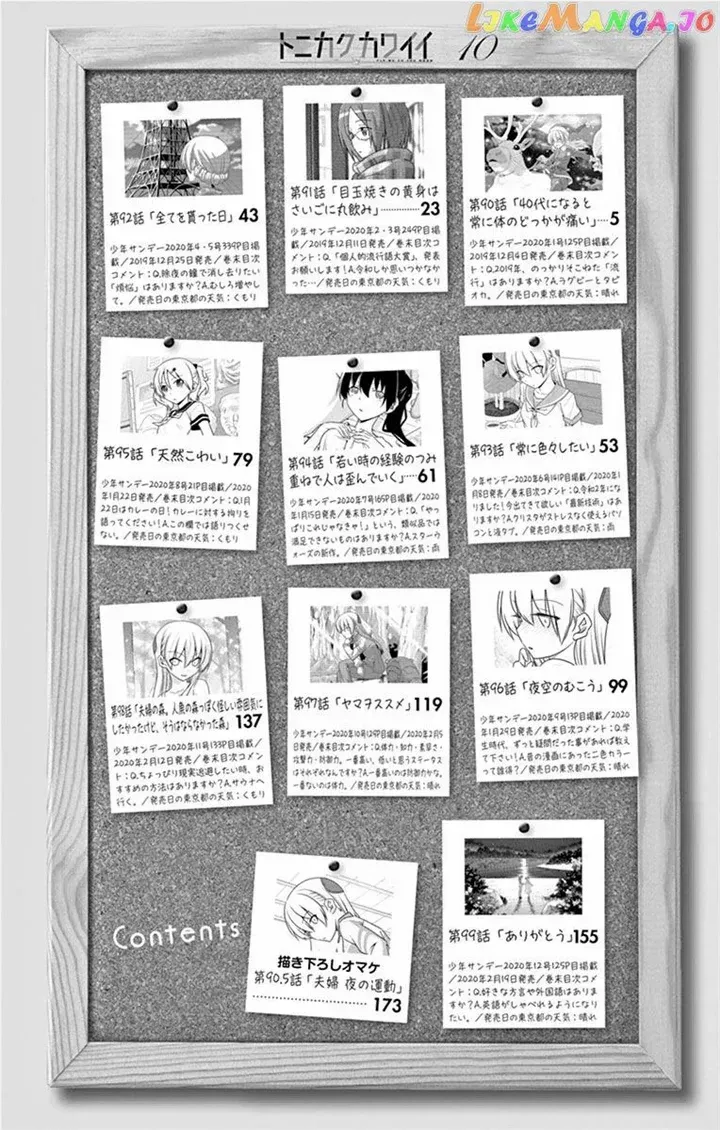 LIKEMANGA.IO
トニカクカワイイ 10
第90話「40代になると
常に体のどっかが痛い」…5
少年サンデー2020年1号125P目掲
載/2019年12月4日発売/巻末目次
コメント:Q.2019年、のっかりそこねた「流
行」はありますか?A.ラグビーとタピ
オカ。/発売日の東京都の天気:晴れ
第91話「目玉焼きの黄身は
さいごに丸飲み」……………23
少年サンデー2020年2・3号249P目
掲載/2019年12月11日発売/巻末目次コ
メント:Q.「個人的流行語大賞」、発表
お願いします!A.令和しか思いつかなか
った…/発売日の東京都の天気:くもり
第92話「全てを貰った日」43
少年サンデー2020年4・5号339P目掲
載/2019年12月25日発売/巻末目次
コメント:Q.除夜の鐘で消し去りたい
「煩悩」はありますか?A.むしろ増やし
て。/発売日の東京都の天気:くもり
第93話「常に色々したい」53
少年サンデー2020年6号141P目掲載/2020年1
月8日発売/巻末目次コメント:Q.令和2年にな
りました!今出てきて欲しい「最新技術」はあ
りますか?A.クリスタがストレスなく使えるパソ
コンと液タブ。/発売日の東京都の天気:雨
第94話「若い時の経験のつみ
重ねで人は歪んでいく」……61
少年サンデー2020年7号165P目掲載/2020
年1月15日発売/巻末目次コメント:Q.「やっ
ぱりこれじゃなきゃ!」という、類似品では
満足できないものはありますか?A.スターウ
ォーズの新作。/発売日の東京都の天気:雨
第95話「天然こわい」79
少年サンデー2020年8号21P目掲載/2020
年1月22日発売/巻末目次コメント:Q.1月
22日はカレーの日!カレーに対する拘りを
語ってください!A.この欄では語りつくせ
ない。/発売日の東京都の天気:くもり
第96話「夜空のむこう」99
少年サンデー2020年9号13P目掲載/2020
年1月29日発売/巻末目次コメント:Q.学
生時代、ずっと疑問だった事があれば教え
て下さい!A.昔の漫画にあった二色カラー
って誰得?/発売日の東京都の天気:晴れ
第97話「ヤマヲススメ」119
少年サンデー2020年10号129P目掲載/2020年2月5
日発売/巻末目次コメント:Q.体力・知力・素早さ・
攻撃力・防御力。一番高い、低いと思うステータス
はそれぞれなんですか?A.一番高いのは防御力かな。
一番ないのは体力。/発売日の東京都の天気:晴れ
第98話「夫婦の森。人魚の森っぽく怪しい雰囲気に
したかったけど、そうはならなかった森」137
少年サンデー2020年11号133P目掲載/
2020年2月12日発売/巻末目次コメン
ト:Q.ちょっぴり現実逃避したい時、お
すすめの方法はありますか?A.サウナへ
行く。/発売日の東京都の天気:晴れ
第99話「ありがとう」155
少年サンデー2020年12号125P目掲載
/2020年2月19日発売/巻末目次コメ
ント:Q.好きな方言や外国語はありま
すか?A.英語がしゃべれるようになり
たい。/発売日の東京都の天気:晴れ
描き下ろしオマケ
第90.5話「夫婦 夜の運動」
……………………173
Contents